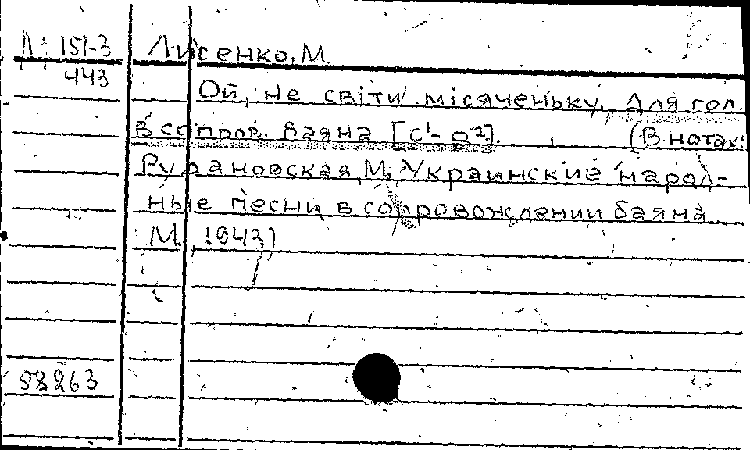 М 151-3
443
Лисенко, М.
Ой, не світи місяченьку. Для гол.
в сопров. баяна [c¹- g²]. (В нотах:
Рудановская, М. Украинские народ-
ные песни в сопровождении баяна.
М., 1943)
58263